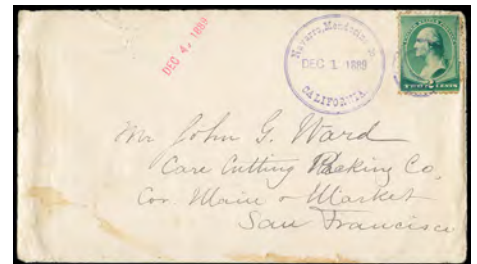 DEC 4, 1889
Navarro, Mendocino
DEC 1 1889
CALIFORNIA.
Mr John G. Ward
Care Cutting Packing Co.
Cor. Main & Market
San Francisco